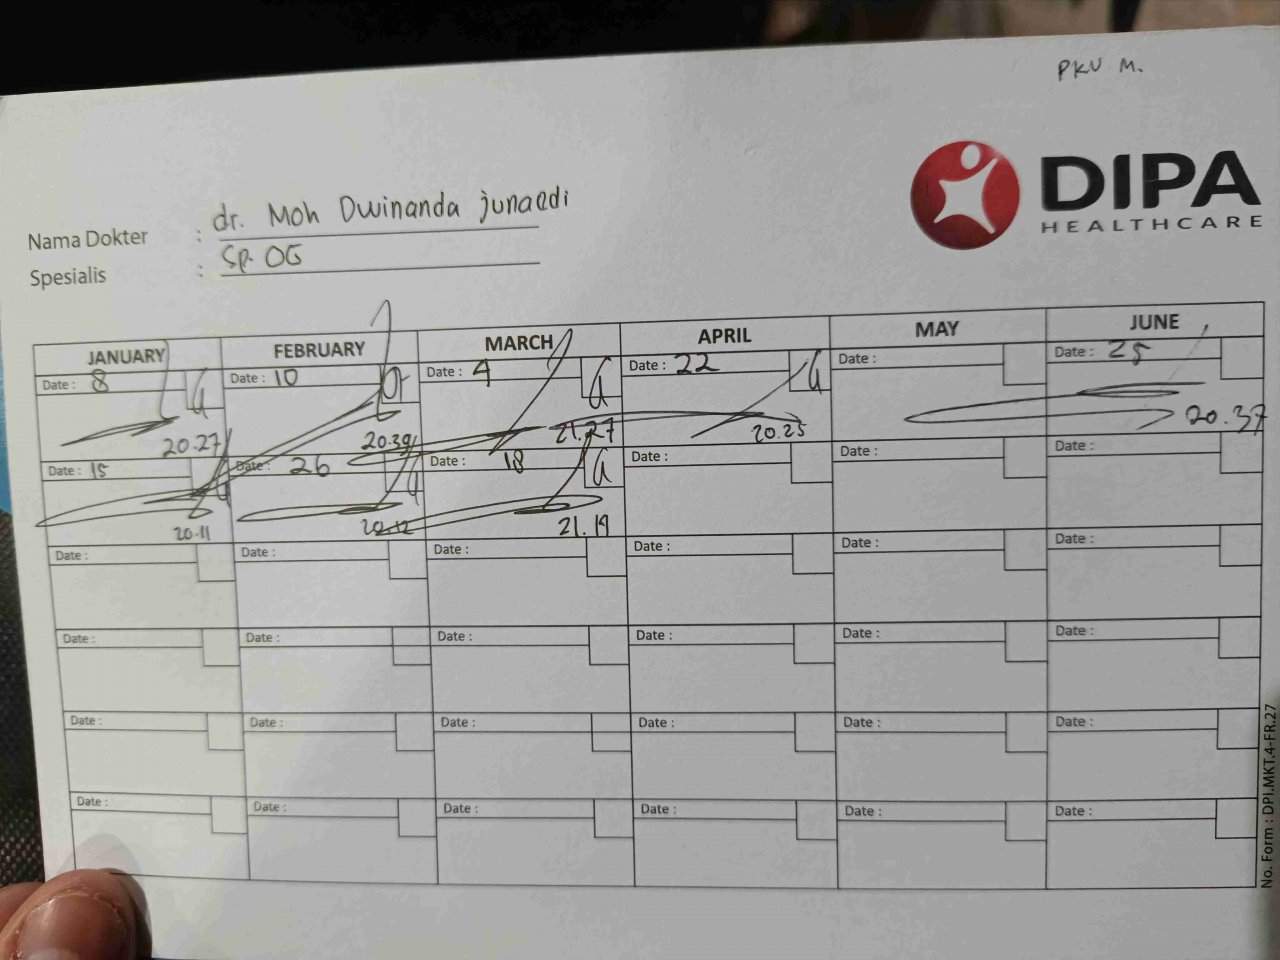 PKU M.
DIPA
HEALTHCARE
Nama Dokter : dr. Moh Dwinanda junaedi
Spesialis : Sp. OG
JANUARY FEBRUARY MARCH APRIL MAY JUNE
Date : 8 Date : 10 Date : 4 Date : 22 Date : Date : 25
20.27 20.39 21.27 20.25 20.37
Date : 15 Date : 26 Date : 18 Date : Date : Date :
20.11 20.12 21.19
Date : Date : Date : Date : Date : Date :
Date : Date : Date : Date : Date : Date :
Date : Date : Date : Date : Date : Date :
Date : Date : Date : Date : Date : Date :
No. Form : DPI.MKT.4-FR.27